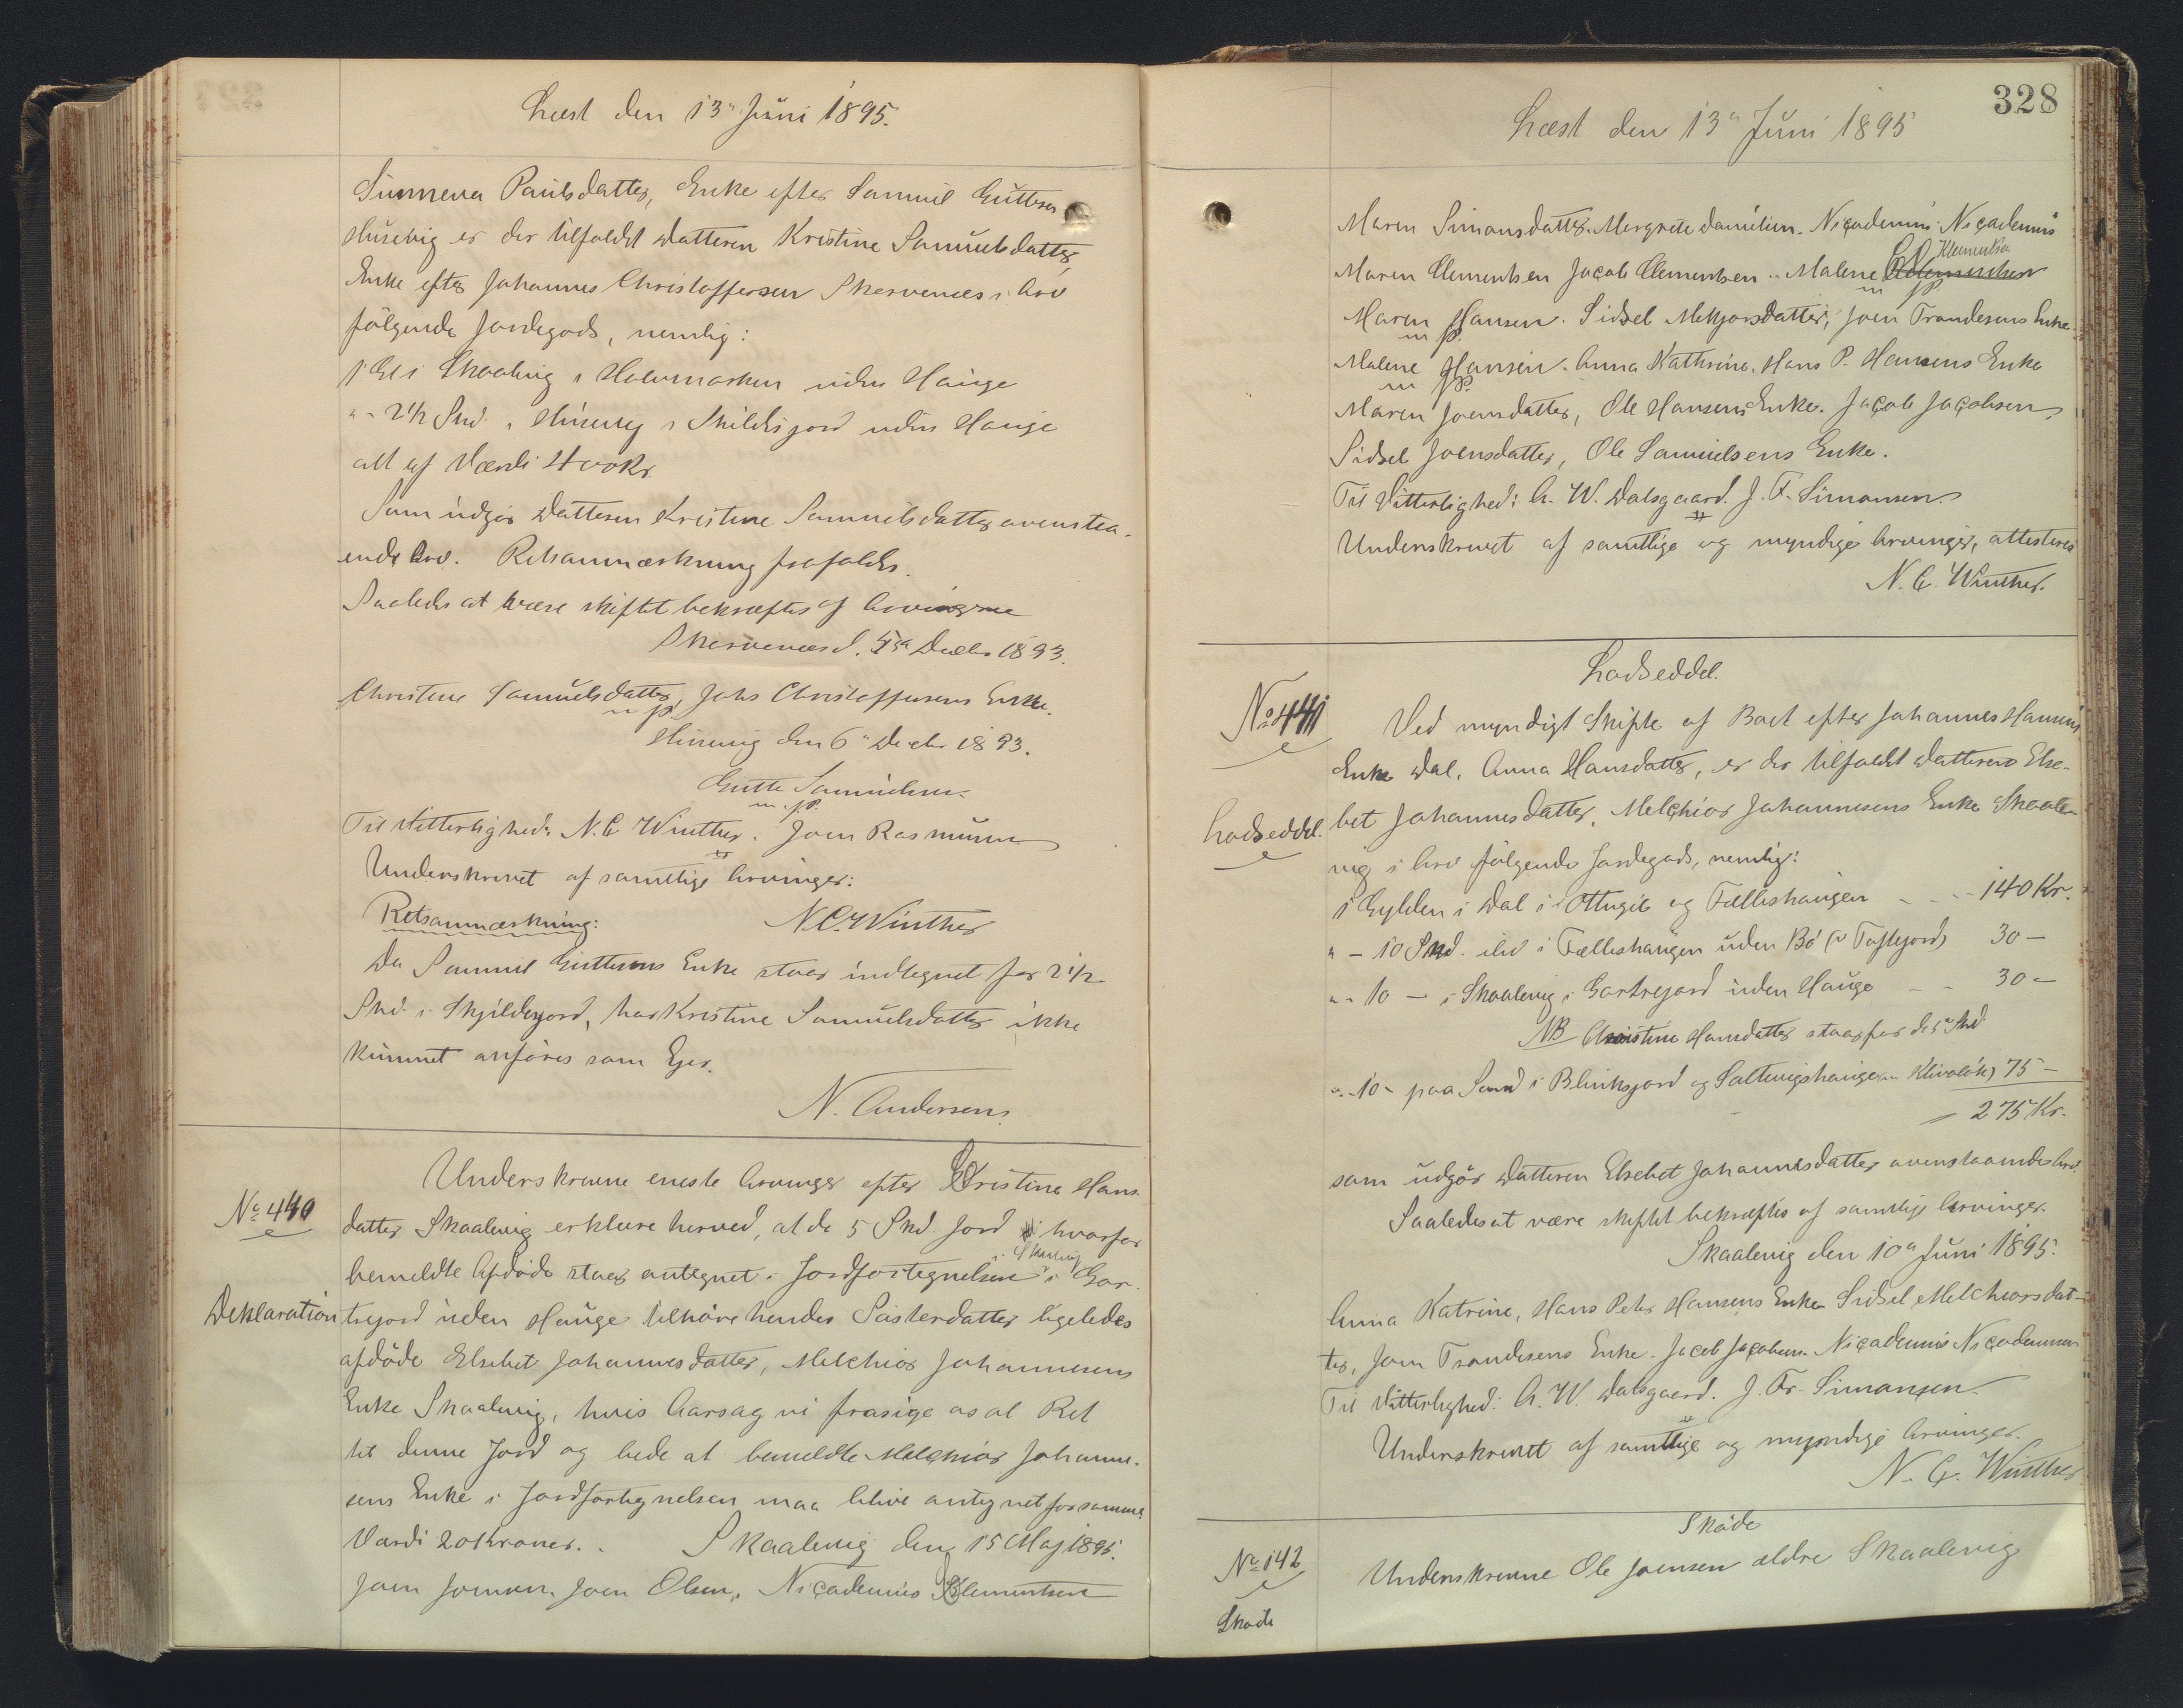 Læst den 13de Juni 1895.
Sunneva Paulsdatter, Enke efter Samuel Guttesen
Husevig er der tilfaldet Datteren Kristine Samuelsdatter,
Enke efter Johannes Christoffersen Skervenes i Arv
følgende Jordegods, nemlig:
1 Gl i Skaalvig i Heimmarken uden Hauge
"- 2 1/2 Skd. i Husevig i Skildisjord uden Hauge
alt af Værdi 400 Kr.
Som udgør Datteren Kristine Samuelsdatter ovenstaa-
ende Arv. Retsanmærkning frafaldes.
Saaledes at være skiftet bekræftes af Arvingerne
Skervenes d. 5te Decbr 1893.
Christine Samuelsdatter, Johs Christoffersens Enke.
m. p.
Husevig den 6te Decbr 1893.
Gutte Samuelsen
m. p.
Til Vitterlighed: N. C. Winther. Joen Rasmussen
Underskrevet af samtlige Arvinger:
Retsanmærkning: N. C. Winther
Da Samuel Guttesens Enke staar indtegnet for 2 1/2
Skd. i Skjildisjord, har Kristine Samuelsdatter ikke
kunnet anføres som Ejer.
N. Andersen.
No 440
Deklaration
Underskrevne eneste Arvinger efter Kristine Hans
datter Skaalevig erklære herved, at de 5 Skd. Jord hvorfor
bemeldte Afdøde staar antegnet i Jordfortegnelsen i Skaalevig i Gar-
trejord uden Hauge tilhøre hendes Søsterdatter ligeledes
afdøde Elsebet Johannesdatter, Melchior Johannesens
Enke Skaalevig, hvis Aarsag vi frasige os al Ret
til denne Jord og bede at bemeldte Melchior Johanne-
sens Enke i Jordfortegnelsen maa blive antegnet for samme.
Værdi 20 Kroner. Skaalevig den 15 Maj 1895.
Joen Joensen. Joen Olsen. Nicademus Klementsen
328
Læst den 13de Juni 1895
Maren Simonsdatter. Margrete Danielsen. Nicademus Nicademus
Maren Clementsen Jacob Clementsen. Malene Klementsen
m. p.
Maren Hansen. Sidsel Melkjorsdatter, Joen Trondesens Enke.
m. p.
Malene Hansen. Anna Kathrine, Hans P. Hansens Enke
m. p.
Maren Joensdatter, Ole Hansens Enke. Jacob Jacobsen
Sidsel Joensdatter, Ole Samuelsens Enke.
Til Vitterlighed: A. W. Dalsgaard. J. F. Simonsen
Underskrevet af samtlige og myndige Arvinger, attesteres
N. C. Winther.
No 441
Lodseddel.
Lodseddel.
Ved myndigt Skifte af Boet efter Johannes Hansens
Enke Dal, Anna Hansdatter, er der tilfaldet Datteren Else-
bet Johannesdatter, Melchior Johannesens Enke Skaale-
vig i Arv følgende Jordegods, nemlig:
1 Gylden i Dal i Ottugil og Fælleshaugen - - - 140 Kr.
" - 10 Skd. ibd i Fælleshaugen uden Bø (i Toftejord) 30 -
" - 10 - i Skaalevig i Gartrejord uden Hauge - - 30 -
NB Christine Hansdatter staar for de 5 Skd
" - 10 - paa Sand i Blinksjord og Saltvigshauge 75 -
275 Kr.
som udgør Datteren Elsebet Johannesdatter ovenstaaende Arv.
Saaledes at være skiftet bekræftes af samtlige Arvinger.
Skaalevig den 10de Juni 1895.
Anna Katrine, Hans Peter Hansens Enke. Sidsel Melchiorsdat-
ter, Joen Trondesens Enke. Jacob Jacobsen. Nicademus Nicademusen
Til Vitterlighed: A. W. Dalsgaard. J. Fr. Simonsen
Underskrevet af samtlige og myndige Arvinger.
N. C. Winther
No 142
Skøde
Skøde
Underskrevne Ole Joensen ældre Skaalevig